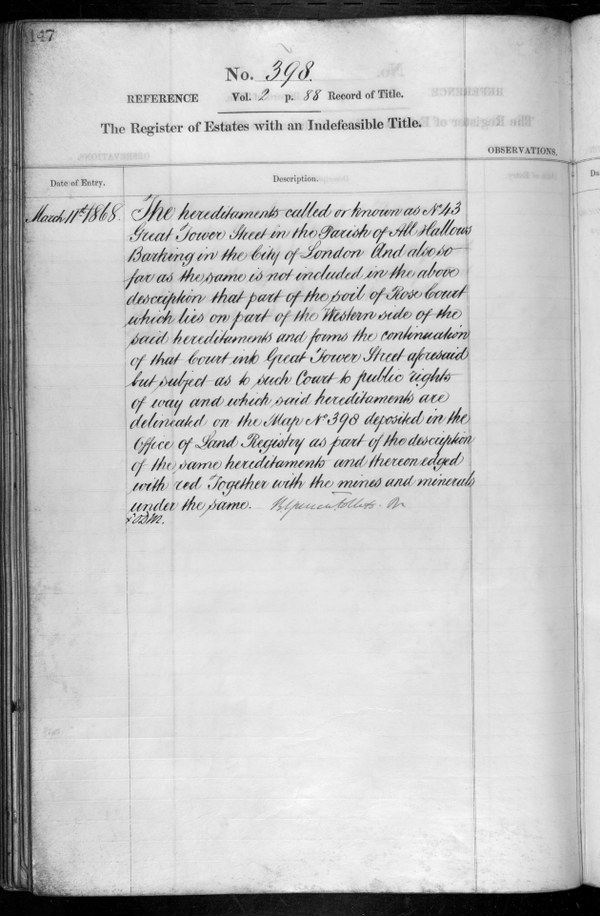 147
No. 398.
REFERENCE Vol. 2 p. 88 Record of Title.
The Register of Estates with an Indefeasible Title.
OBSERVATIONS.
Date of Entry.
Description.
March 11th 1868.
The hereditaments called or known as No 43
Great Tower Street in the Parish of All Hallows
Barking in the City of London And also so
far as the same is not included in the above
description that part of the soil of Rose Court
which lies on part of the Western side of the
said hereditaments and forms the continuation
of that Court into Great Tower Street aforesaid
but subject as to such Court to public rights
of way and which said hereditaments are
delineated on the Map No 398 deposited in the
Office of Land Registry as part of the description
of the same hereditaments and thereon edged
with red Together with the mines and minerals
under the same.